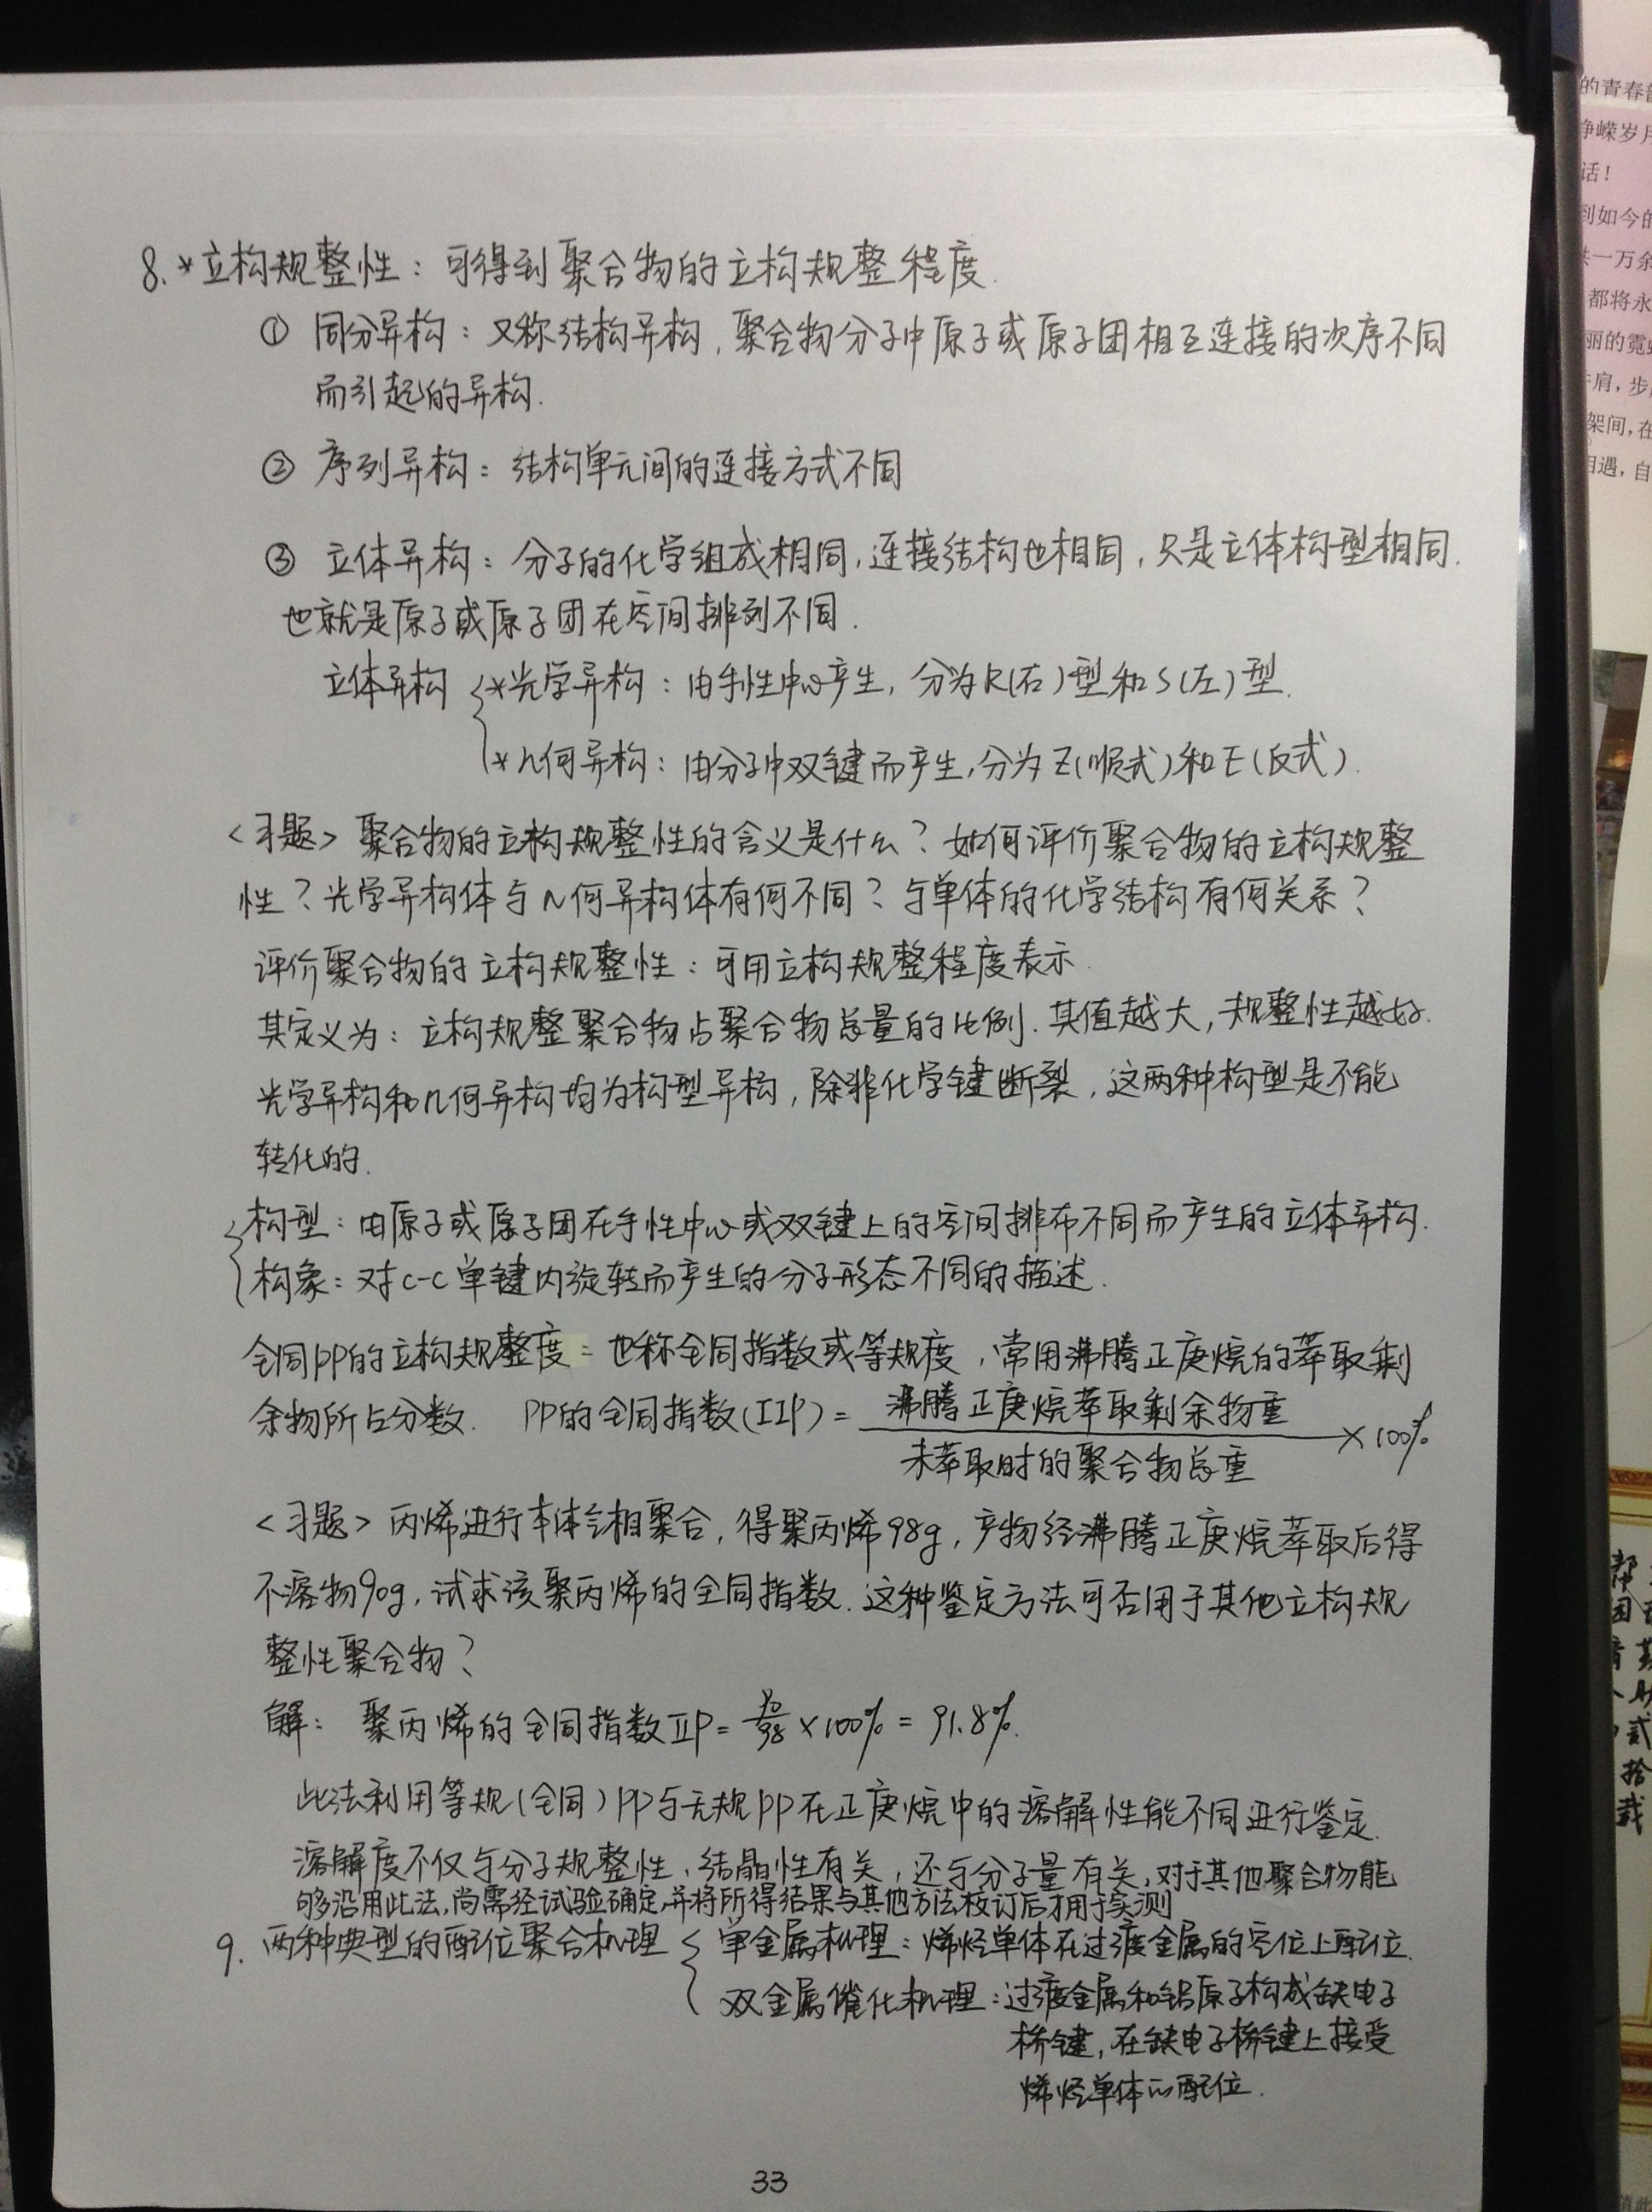 8.*立构规整性：可得到聚合物的立构规整程度.
① 同分异构：又称结构异构，聚合物分子中原子或原子团相互连接的次序不同
而引起的异构.
② 序列异构：结构单元间的连接方式不同
③ 立体异构：分子的化学组成相同,连接结构也相同,只是立体构型相同.
也就是原子或原子团在空间排列不同.
立体异构 *光学异构：由手性中心产生,分为R(右)型和S(左)型.
*几何异构：由分子中双键而产生,分为Z(顺式)和E(反式).
<习题> 聚合物的立构规整性的含义是什么？如何评价聚合物的立构规整
性？光学异构体与几何异构体有何不同？与单体的化学结构有何关系？
评价聚合物的立构规整性：可用立构规整程度表示.
其定义为：立构规整聚合物占聚合物总量的比例.其值越大,规整性越好.
光学异构和几何异构均为构型异构,除非化学键断裂,这两种构型是不能
转化的.
构型：由原子或原子团在手性中心或双键上的空间排布不同而产生的立体异构.
构象：对C-C单键内旋转而产生的分子形态不同的描述.
全同PP的立构规整度：也称全同指数或等规度,常用沸腾正庚烷的萃取剩
余物所占分数. PP的全同指数(IIP)= 沸腾正庚烷萃取剩余物重 ×100%
未萃取时的聚合物总重
<习题> 丙烯进行本体气相聚合,得聚丙烯98g,产物经沸腾正庚烷萃取后得
不溶物90g,试求该聚丙烯的全同指数.这种鉴定方法可否用于其他立构规
整性聚合物？
解：聚丙烯的全同指数IIP=90/98×100%=91.8%.
此法利用等规(全同)PP与无规PP在正庚烷中的溶解性能不同进行鉴定.
溶解度不仅与分子规整性、结晶性有关,还与分子量有关,对于其他聚合物能
够沿用此法,尚需经试验确定,并将所得结果与其他方法校订后才用于实测
9. 两种典型的配位聚合机理 单金属机理：烯烃单体在过渡金属的空位上配位.
双金属催化机理：过渡金属和铝原子构成缺电子
桥键,在缺电子桥键上接受
烯烃单体的配位.
33
的青春
峥嵘岁月
话！
到如今的
一万余
都将永
丽的霓
肩，步
架间，在
相遇，自